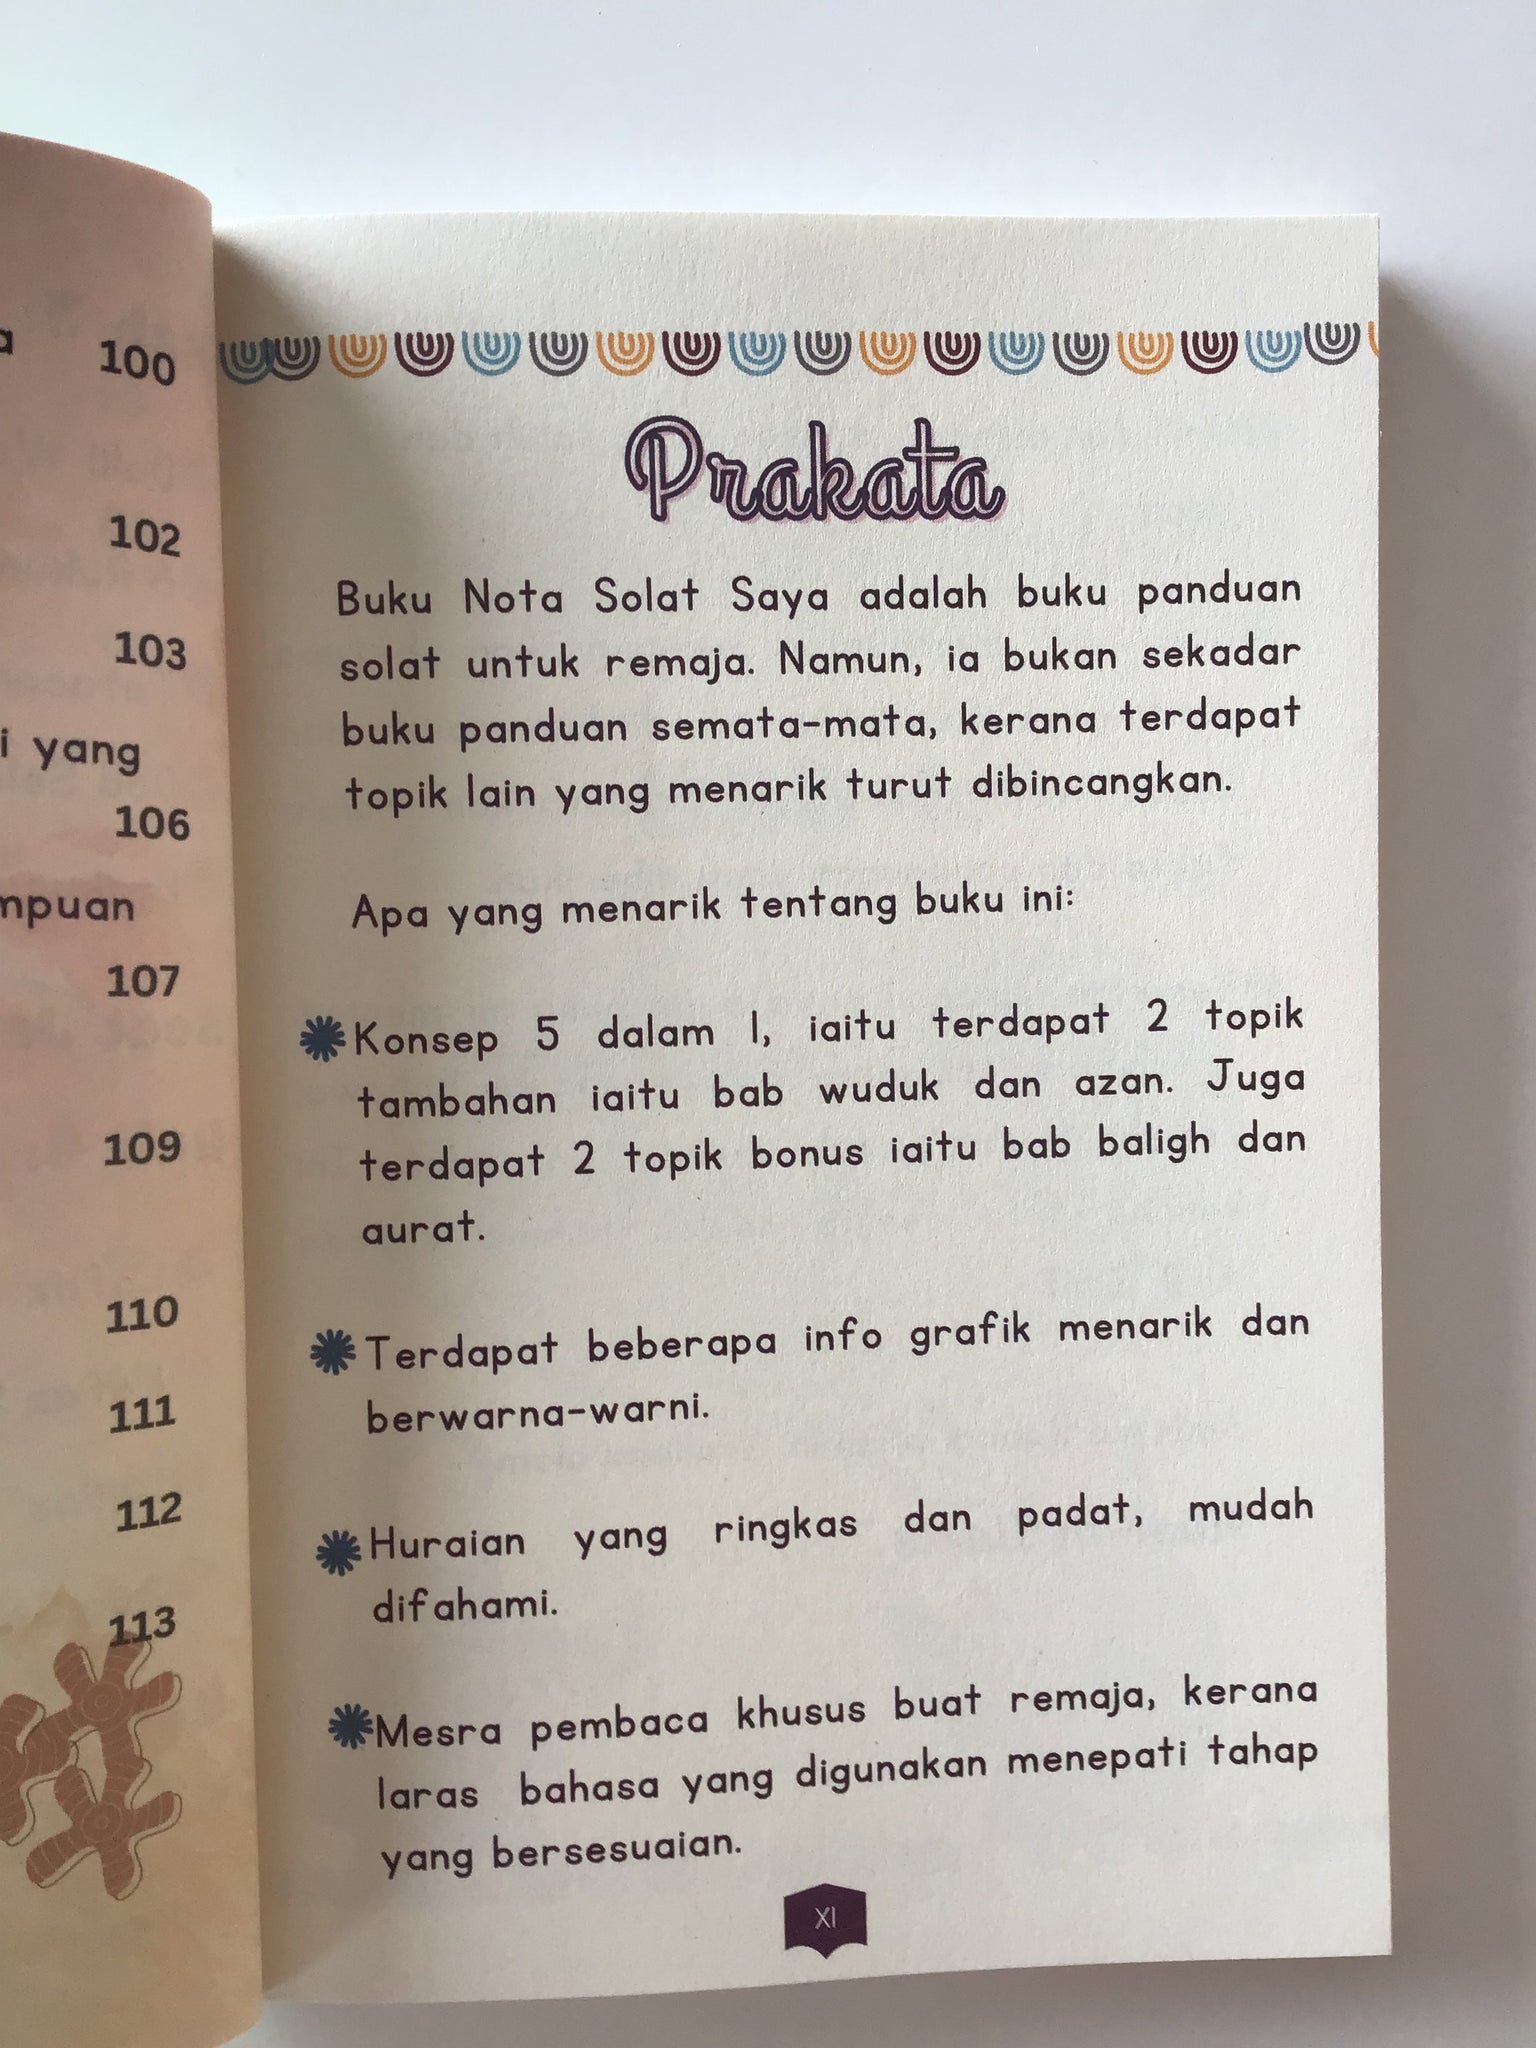 a
100
102
103
i yang
106
mpuan
107
109
110
111
112
113
Prakata
Buku Nota Solat Saya adalah buku panduan
solat untuk remaja. Namun, ia bukan sekadar
buku panduan semata-mata, kerana terdapat
topik lain yang menarik turut dibincangkan.
Apa yang menarik tentang buku ini:
Konsep 5 dalam 1, iaitu terdapat 2 topik
tambahan iaitu bab wuduk dan azan. Juga
terdapat 2 topik bonus iaitu bab baligh dan
aurat.
Terdapat beberapa info grafik menarik dan
berwarna-warni.
Huraian yang ringkas dan padat, mudah
difahami.
Mesra pembaca khusus buat remaja, kerana
laras bahasa yang digunakan menepati tahap
yang bersesuaian.
XI